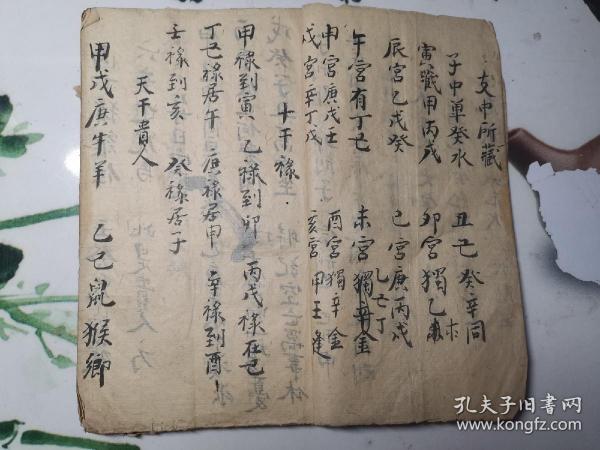 支中所藏
子中单癸水 丑己癸辛同
寅藏甲丙戊 卯宫獨乙木
辰宫乙戊癸 巳宫庚丙戊
午宫有丁己 未宫獨辛金 乙己丁
申宫庚戊壬 酉宫獨辛金
戌宫辛丁戊 亥宫甲壬逢
十干禄
甲禄到寅 乙禄到卯 丙戊禄在巳
丁己禄居午 庚禄居申 辛禄到酉
壬禄到亥 癸禄居子
天干貴人
甲戊庚牛羊 乙己鼠猴鄉
孔夫子旧书网
www.kongfz.com